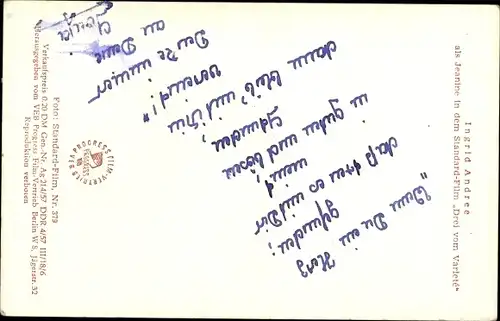 Ingrid Andree
als Jeanine in dem Standard-Film „Drei vom Varieté"
"Wenn Du ein Herz
gefunden,
daß treu es mit Dir
meint,
in guten und bösen
Stunden,
dann bleib' mit ihm
vereint!"
Den Re immer
an Deine
Foto: Standard-Film, Nr. 379
PROGRESS FILM-VERTRIEB
Verkaufspreis 0.20 DM Gen.-Nr. Ag 214/57 DDR 4/57 III/18/6
Herausgegeben vom VEB Progress Film-Vertrieb, Berlin W 8, Jägerstr. 32
Reproduktion verboten